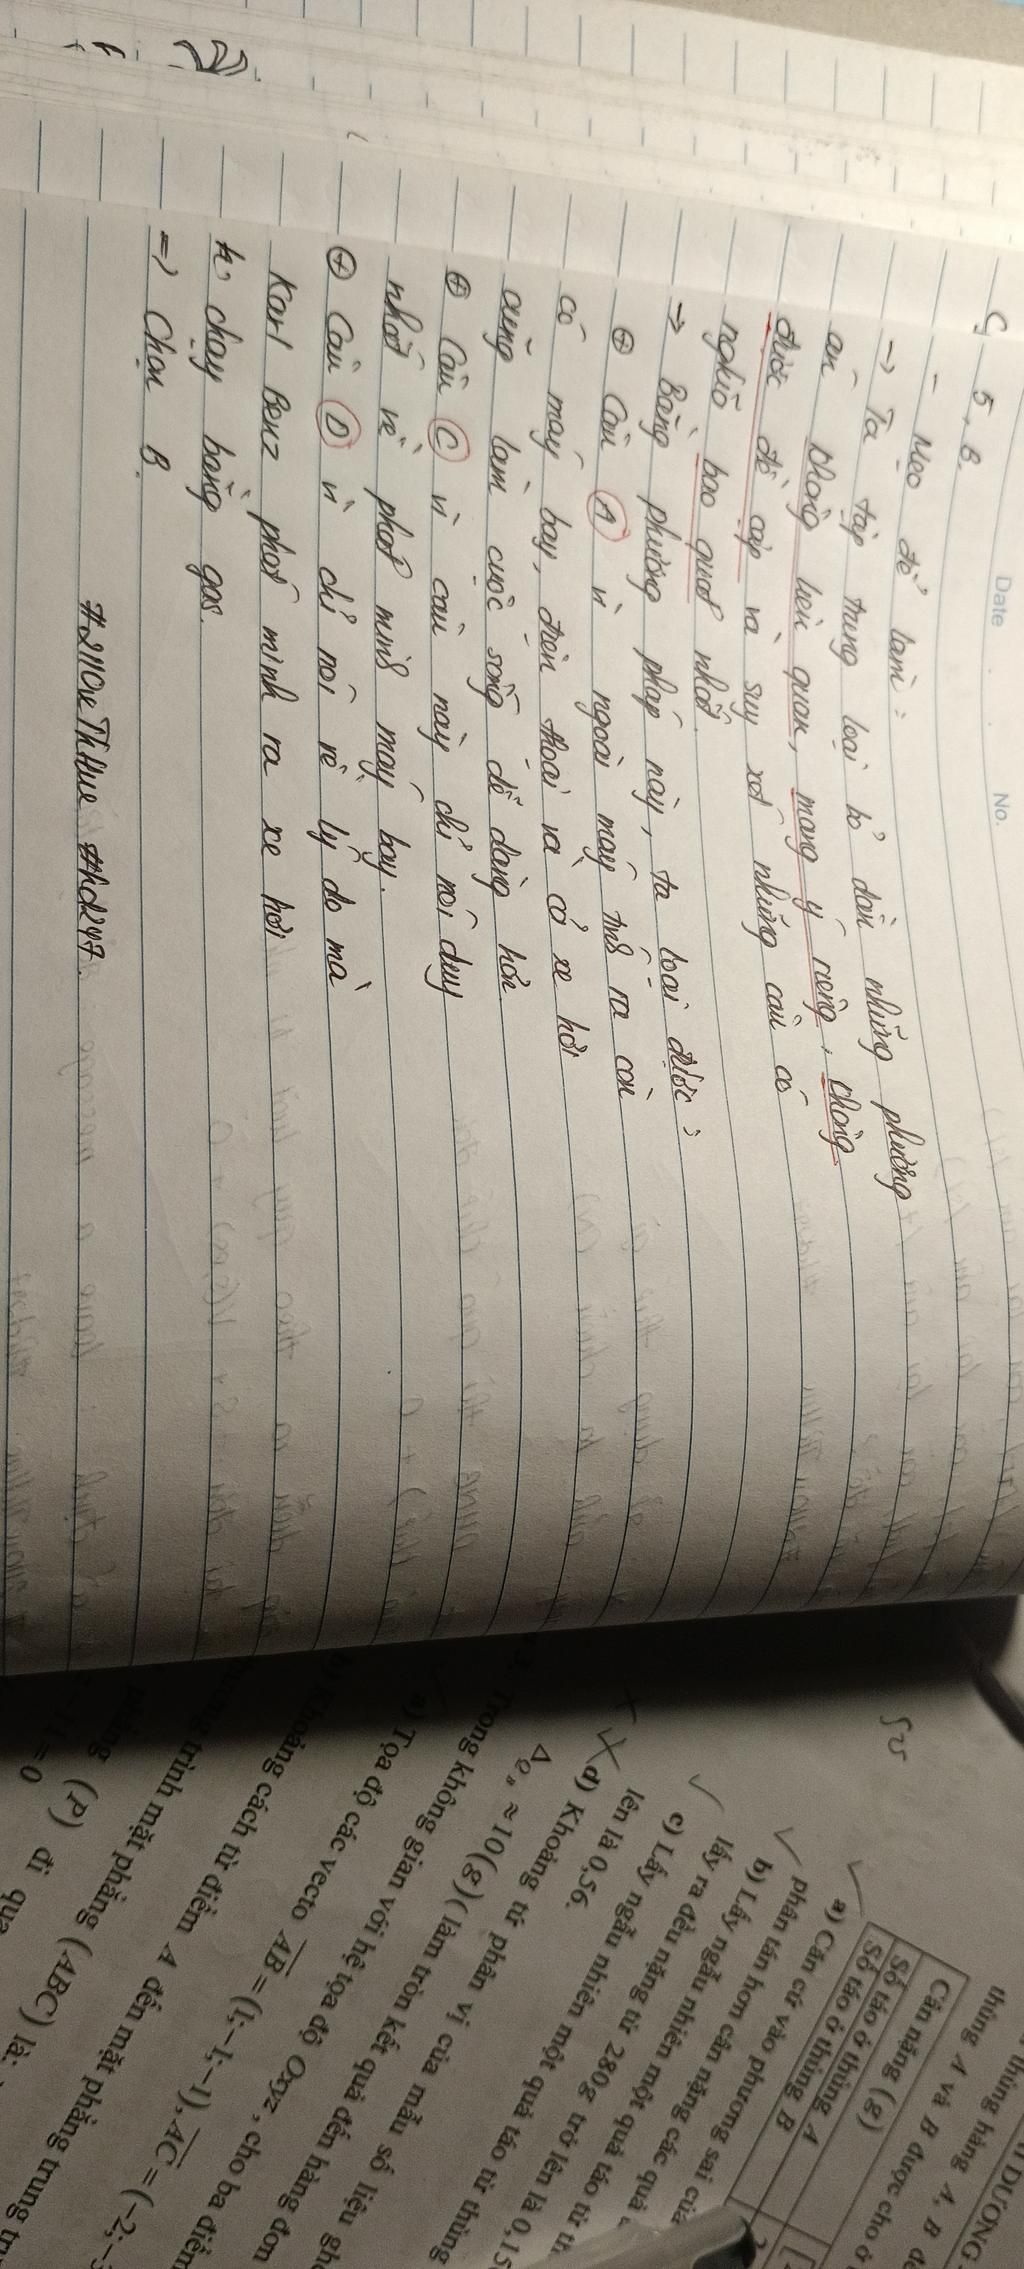 Date No.
C 5, B.
- Mẹo để làm:
→ Ta tập trung loại bỏ dần những phương
án không liên quan, mang ý riêng, không
được đề cập và suy xét những câu có
nghĩa bao quát nhất.
→ Bằng phương pháp này, ta loại được:
⊕ Câu A vì ngoài máy tính ra còn
có máy bay, điện thoại và cả xe hơi
cũng làm cuộc sống dễ dàng hơn
⊕ Câu C vì câu này chỉ nói duy
nhất về phát minh máy bay.
⊕ Câu D vì chỉ nói về lý do mà
Karl Benz phát minh ra xe hơi
chạy bằng gas.
=) Chọn B.
DƯƠNG
thùng hàng A, B
thùng A và B được cho ở
Cân nặng (g)
Số táo ở thùng A
Số táo ở thùng B
a) Căn cứ vào phương sai của
phân tán hơn cân nặng các quả
b) Lấy ngẫu nhiên một quả táo từ
lấy ra đều nặng từ 280g trở lên là 0,15
c) Lấy ngẫu nhiên một quả táo từ thùng
lên là 0,56.
d) Khoảng tứ phân vị của mẫu số liệu
≈ 10(g) (làm tròn kết quả đến hàng đơn
3. Trong không gian với hệ tọa độ Oxyz, cho ba điểm
a) Tọa độ các vectơ AB = (1;-1;-1), AC = (-2;
b) Khoảng cách từ điểm A đến mặt phẳng trung
trình mặt phẳng (ABC) là:
phẳng (P) đi qua
- 11 = 0